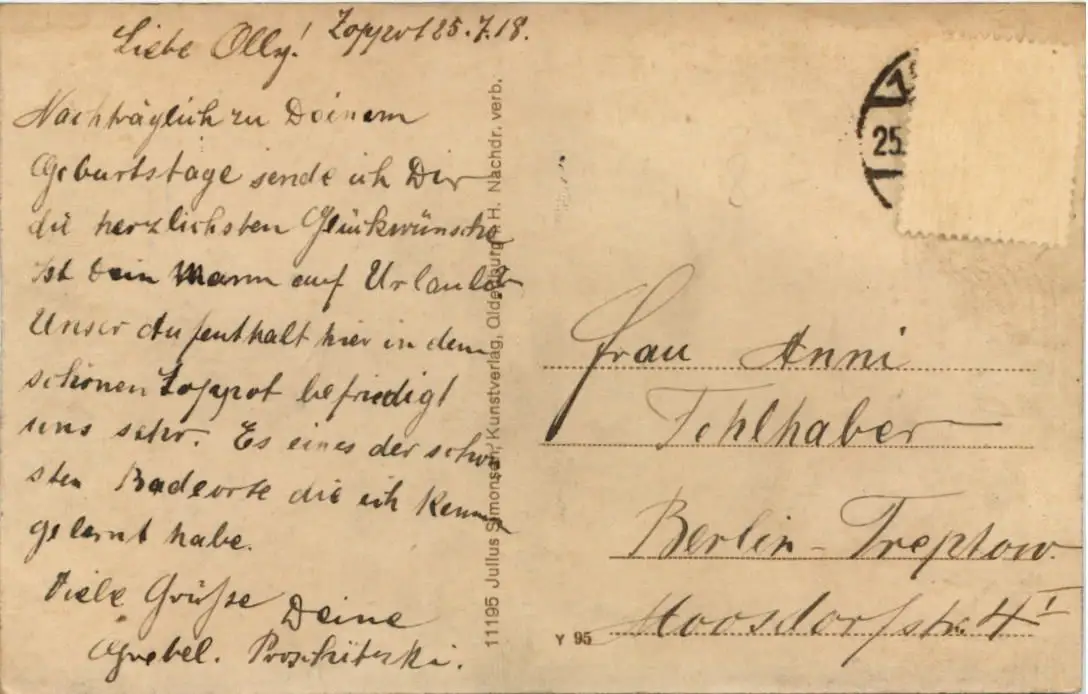 Zoppot 25.7.18.
Liebe Olly!
Nachträglich zu Deinem
Geburtstage sende ich Dir
die herzlichsten Glückwünsche
Ist Dein Mann auf Urlaub
Unser Aufenthalt hier in dem
schönen Zoppot befriedigt
uns sehr. Es eines der schön
sten Badeorte die ich kennen
gelernt habe.
Viele Grüße Deine
11195 Julius Simonsen, Kunstverlag, Oldenburg i. H. Nachdr. verb.
1
25.
Frau Anni
Fehlhaber
Berlin-Treptow
Moosdorfstr. 4 I
Y 95